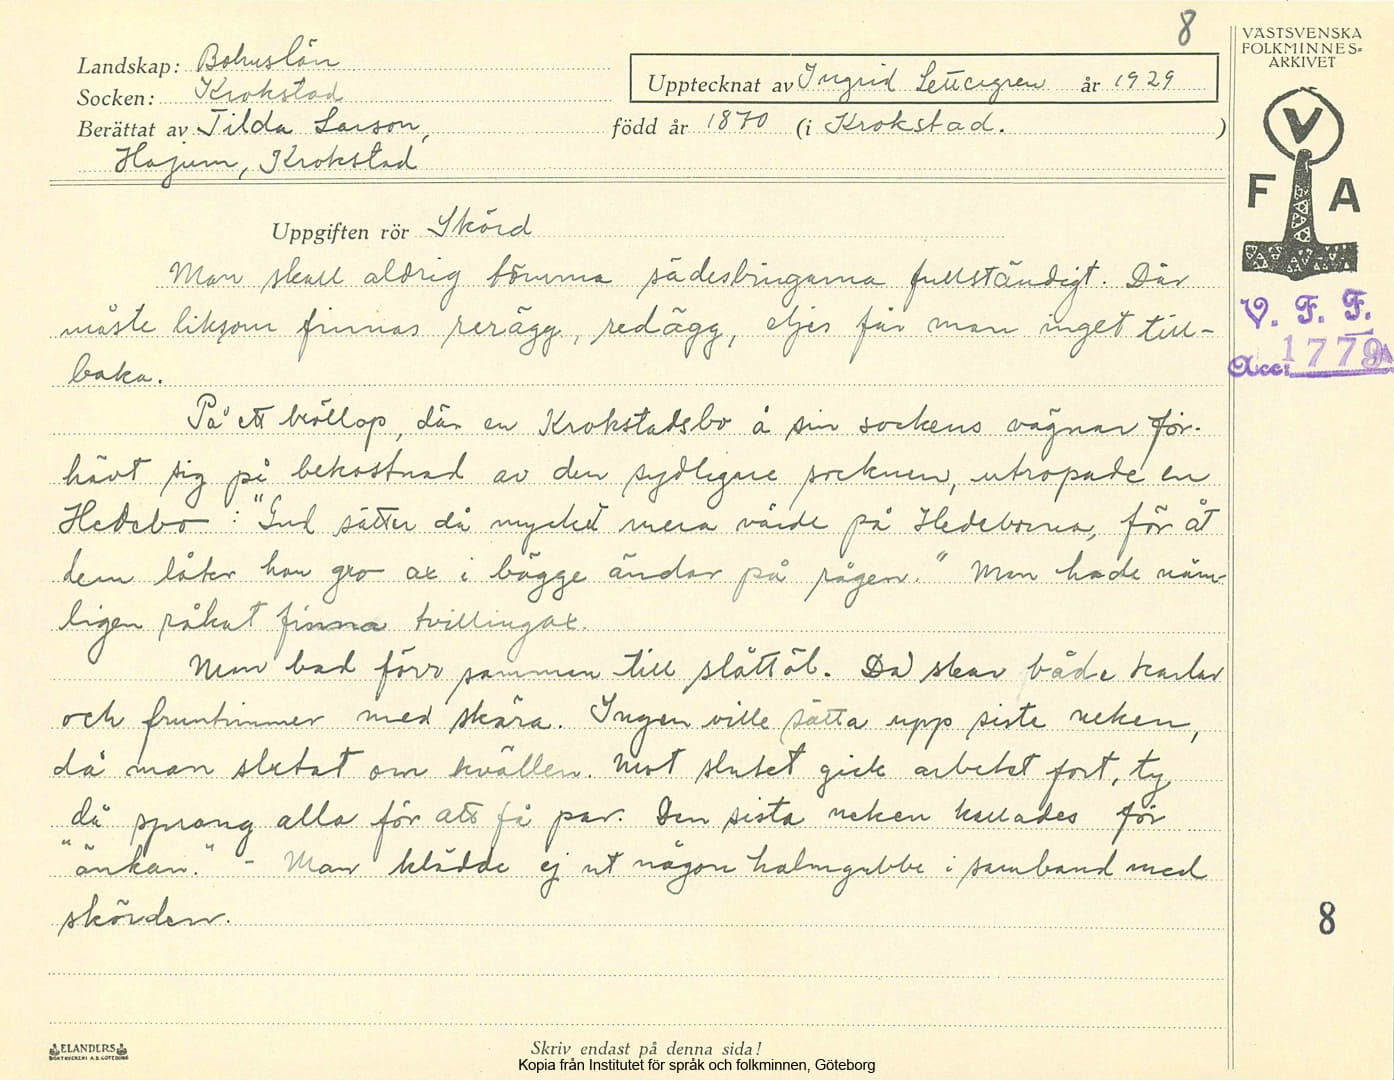 8
VÄSTSVENSKA
FOLKMINNES-
ARKIVET
Landskap: Bohuslän
Upptecknat av Ingrid år 1929
Socken: Krokstad
Berättat av Tilda Larson, född år 1870 (i Krokstad. )
Hajum, Krokstad
V
F A
Uppgiften rör Skörd
Man skall aldrig tömma sädesbingarna fullständigt. Där
måste liksom finnas rerägg, redägg, eljes får man inget till-
baka.
V. F. F.
Acc: 1779
På ett bröllop, där en Krokstadsbo å sin sockens vägnar för-
hävt sig på bekostnad av den sydligare socknen, utropade en
Hedebo: "Gud sätter då mycket mera värde på Hedeborna, för åt
dem låter han gro ax i bägge ändar på rågen." Man hade näm-
ligen råkat finna tvillingax.
Man bad förr samman till slåttöl. Då skar både karlar
och fruntimmer med skära. Ingen ville sätta upp siste neken,
då man slutat om kvällen. Mot slutet gick arbetet fort, ty
då sprang alla för att få par. Den sista neken kallades för
"änkan." - Man klädde ej ut någon halmgubbe i samband med
skörden.
8
ELANDERS
BOKTRYCKERI A.B. GÖTEBORG
Skriv endast på denna sida!
Kopia från Institutet för språk och folkminnen, Göteborg